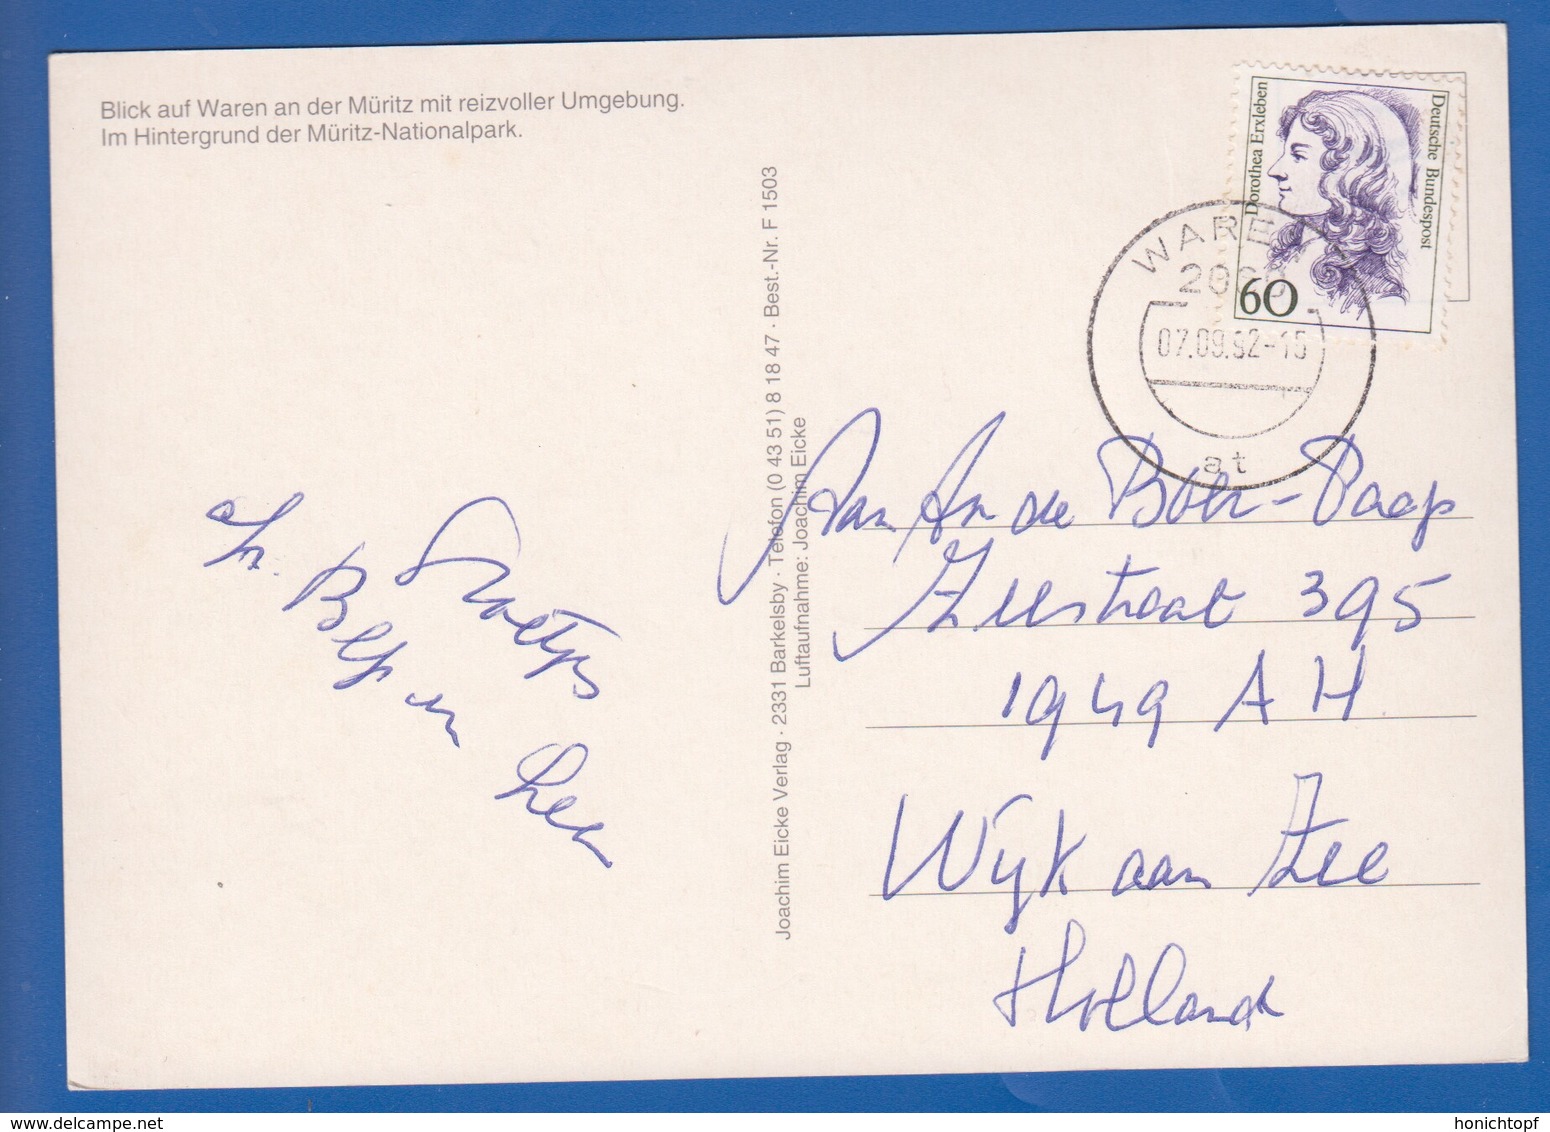 Blick auf Waren an der Müritz mit reizvoller Umgebung.
Im Hintergrund der Müritz-Nationalpark.
Dorothea Erxleben
Deutsche Bundespost
60
WAREN
2060
07.09.92-15
at
Joachim Eicke Verlag · 2331 Barkelsby · Telefon (0 43 51) 8 18 47 · Best.-Nr. F 1503
Luftaufnahme: Joachim Eicke
Groetjes
de Boer-Paap
Zeestraat 395
1949 AH
Wijk aan Zee
Holland
honichtopf